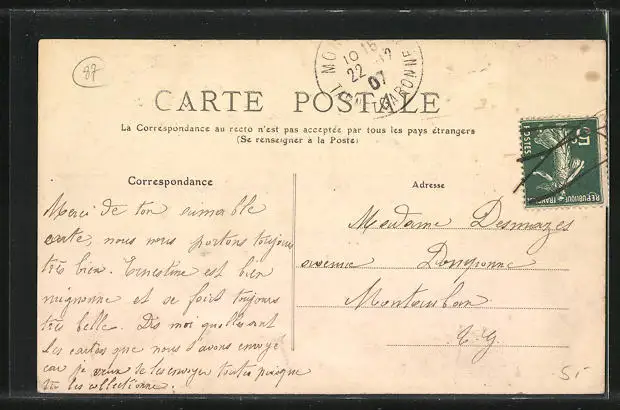 87
MON
10 15
22
07
GARONNE
CARTE POSTALE
La Correspondance au recto n'est pas acceptée par tous les pays étrangers
(Se renseigner à la Poste)
5c
POSTES
REPUBLIQUE FRANÇAISE
Correspondance
Merci de ton aimable
carte, nous nous portons toujours
très bien. Ernestine est bien
mignonne et se fait toujours
très belle. Dis moi quelles sont
les cartes que nous t'avons envoyé
car je veux te les envoyer toutes puisque
tu les collectionne.
Adresse
Madame Desmazes
avenue
Montauban
T. G.
5.-